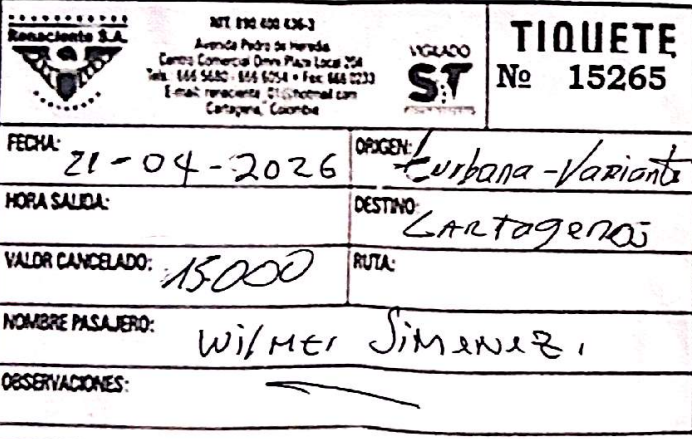 Renaciente S.A.
NIT. 890.400.436-3
Avenida Pedro de Heredia
Centro Comercial Omni Plaza Local 254
Tels.: 666 5680 - 666 6254 • Fax: 666 0233
E-mail: renaciente_01@hotmail.com
Cartagena, Colombia
VIGILADO
ST
TIQUETE
Nº 15265
FECHA: 21-04-2026
ORIGEN: turbana-Variante
HORA SALIDA:
DESTINO: CARTagena
VALOR CANCELADO: 15000
RUTA:
NOMBRE PASAJERO: WilMEr JiMENEZ.
OBSERVACIONES: